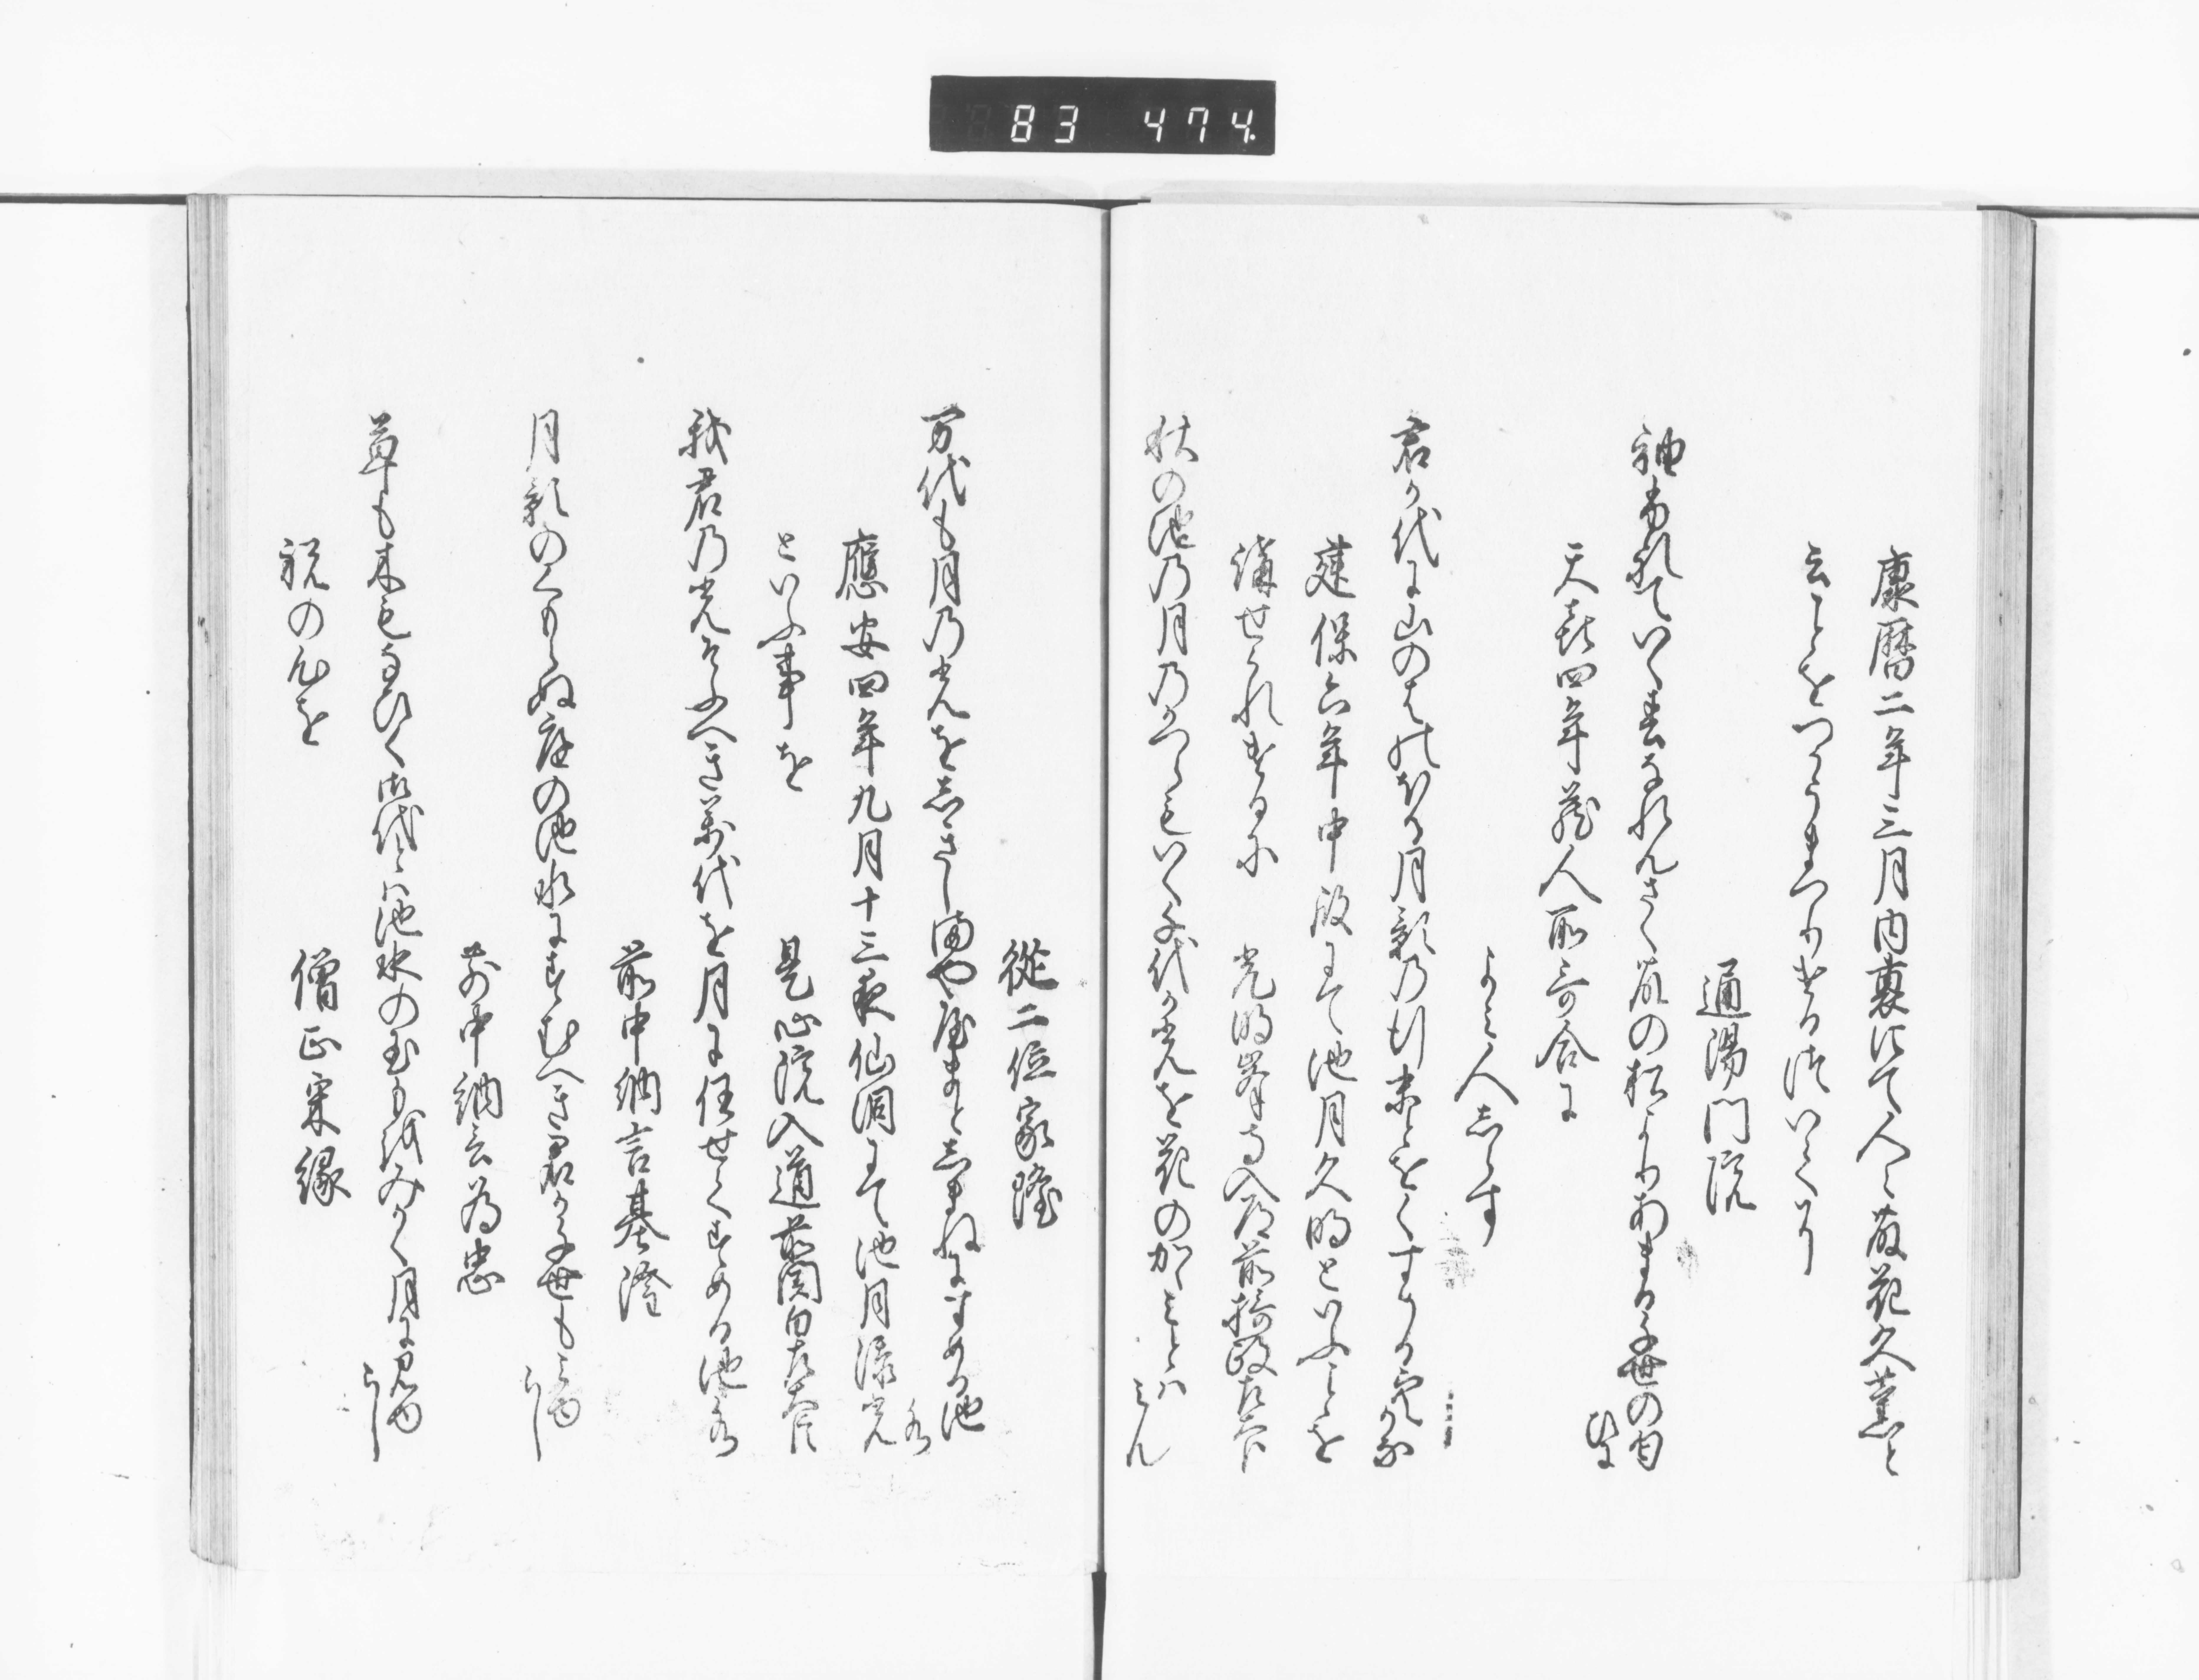 83 474.
康暦二年三月内裏にて人々藤花久薫と
云ことをつかうまつりける次いてに
通陽門院
袖ふれていく春なれんさく藤の松よりあまる千世の匂
ひに
天喜四年蔵人所哥合に
よみ人しらす
君か代は山のはのほる月影の行末とをくすめる空かな
建保六年中殿にて池月久明といふことを
講せられけるに 光明峯寺入道前摂政左大臣
秋の池の月のかつらもいく千代か光を花のかゝみとは
みん
従二位家隆
万代も月の光をしきしまややまとしまねにすめる池
水
應安四年九月十三夜仙洞にて池月添光
といふ事を 是心院入道前関白左大臣
我君の光そふへき万代を月に任せてすめる池水
前中納言基隆
月影のくもらぬ庭の池水にすむへき君か千世もみゆ
らし
前中納言為忠
草も木もなひく御代とは池水の玉もをみかく月に見ゆ
らし
祝の心を
僧正果縁